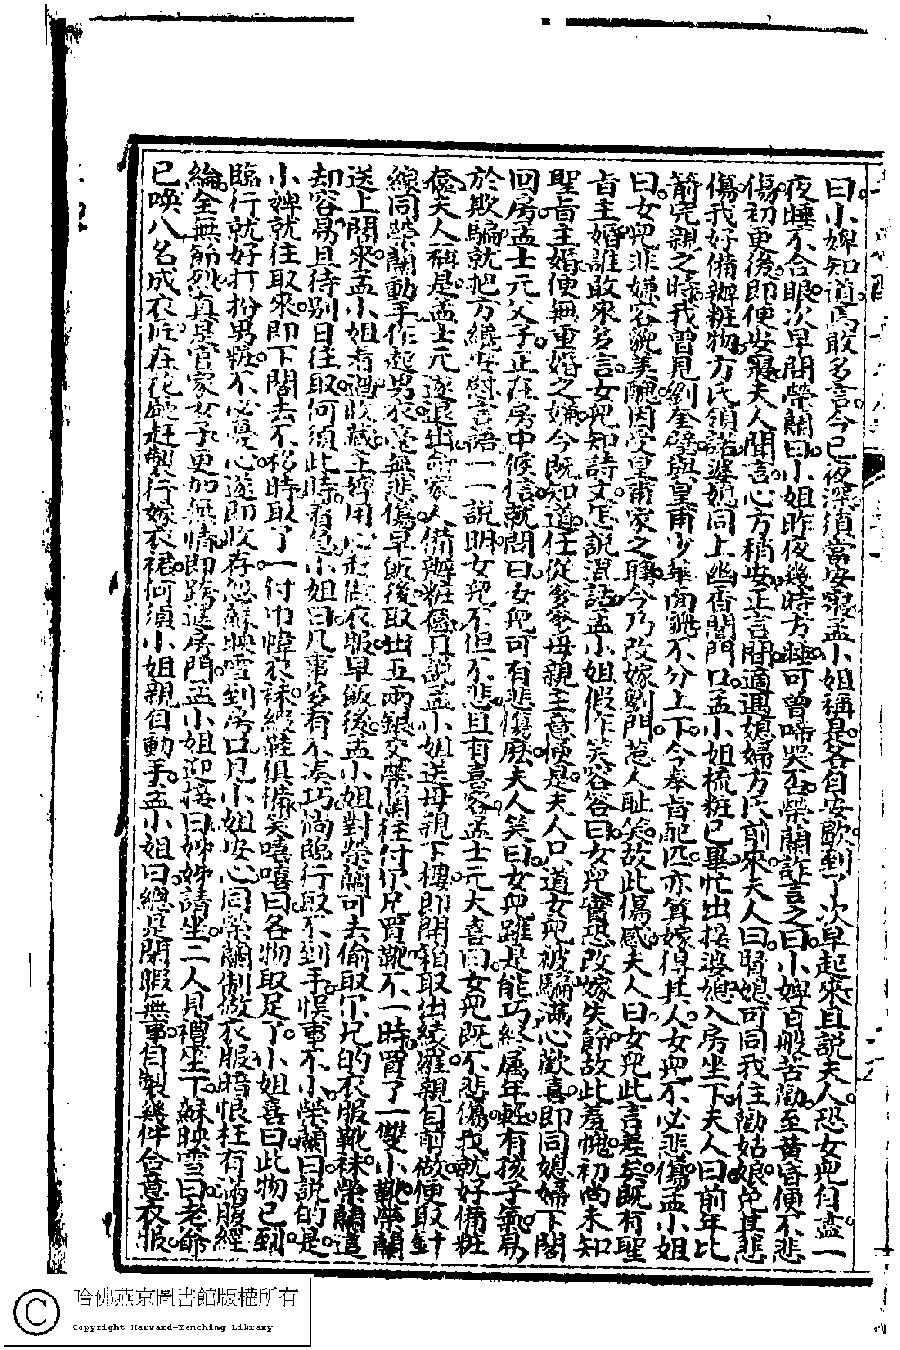 曰小婢知道焉敢多言今已夜深須當安寢孟小姐稱是各自安歇到了次早起來且說夫人恐女兒自盡一
夜睡不合眼次早問榮蘭曰小姐昨夜幾時方睡可曾啼哭否榮蘭詐言之曰小婢百般苦勸至黃昏便不悲
傷初更後即便安寢夫人聞言心方稍安正言間適遇媳婦方氏前來夫人曰賢媳可同我往勸姑娘免其悲
傷我好備辦粧物方氏領諾婆媳同上幽香閣門口孟小姐梳粧已畢忙出接婆媳入房坐下夫人曰前年比
箭完親之時我曾見劉奎璧與皇甫少華面貌不分上下今奉旨配匹亦算嫁得其人女兒不必悲傷孟小姐
曰女兒非嫌容貌美醜因受皇甫家之聘今乃改嫁劉門惹人恥笑故此傷感夫人曰女兒此言差矣既有聖
旨主婚誰敢來多言女兒知詩文怎說混話孟小姐假作笑容答曰女兒實恐改嫁失節故此羞愧初尚未知
聖旨主婚便無重婚之嫌今既知道任從爹爹母親主意便是夫人只道女兒被騙滿心歡喜即同媳婦下閣
回房孟士元父子正在房中候信就問曰女兒可有悲傷麼夫人笑曰女兒雖是能巧終属年輕有孩子氣易
於欺騙就把方纔安慰言語一一說明女兒不但不悲且有喜容孟士元大喜曰女兒既不悲傷我就好備粧
奩夫人稱是孟士元遂退出命家人備辦粧奩且說孟小姐送母親下樓即開箱取出綾羅親自前做便取針
線同榮蘭動手作起男衣並無悲傷早飯後取出五兩銀交榮蘭往付尔兄買靴不一時買了一雙小靴榮蘭
送上閣來孟小姐看過收藏主婢用心赶做衣服早飯後孟小姐對榮蘭可去偷取尔兄的衣服靴袜榮蘭道
却容易且待別日往取何須此時着急小姐曰凡事多有不湊巧倘臨行取不到手悞事不小榮蘭曰說的是
小婢就往取來即下閣去不移時取了一付巾幃衣袜綾鞋俱備笑嘻嘻曰各物取足了小姐喜曰此物已到
臨行就好打扮男粧不必憂心遂即收存忽蘇映雪到房口見小姐安心同榮蘭制做衣服暗恨枉有滿腹經
綸全無節烈真是官家女子更加無情即跨進房門孟小姐迎接曰姊姊請坐二人見禮坐下蘇映雪曰老爺
已喚八名成衣匠在花廳赶製行嫁衣裙何須小姐親自動手孟小姐曰總是閑暇無事自製幾件合意衣服
哈佛燕京圖書館版權所有
Copyright Harvard-Yenching Library